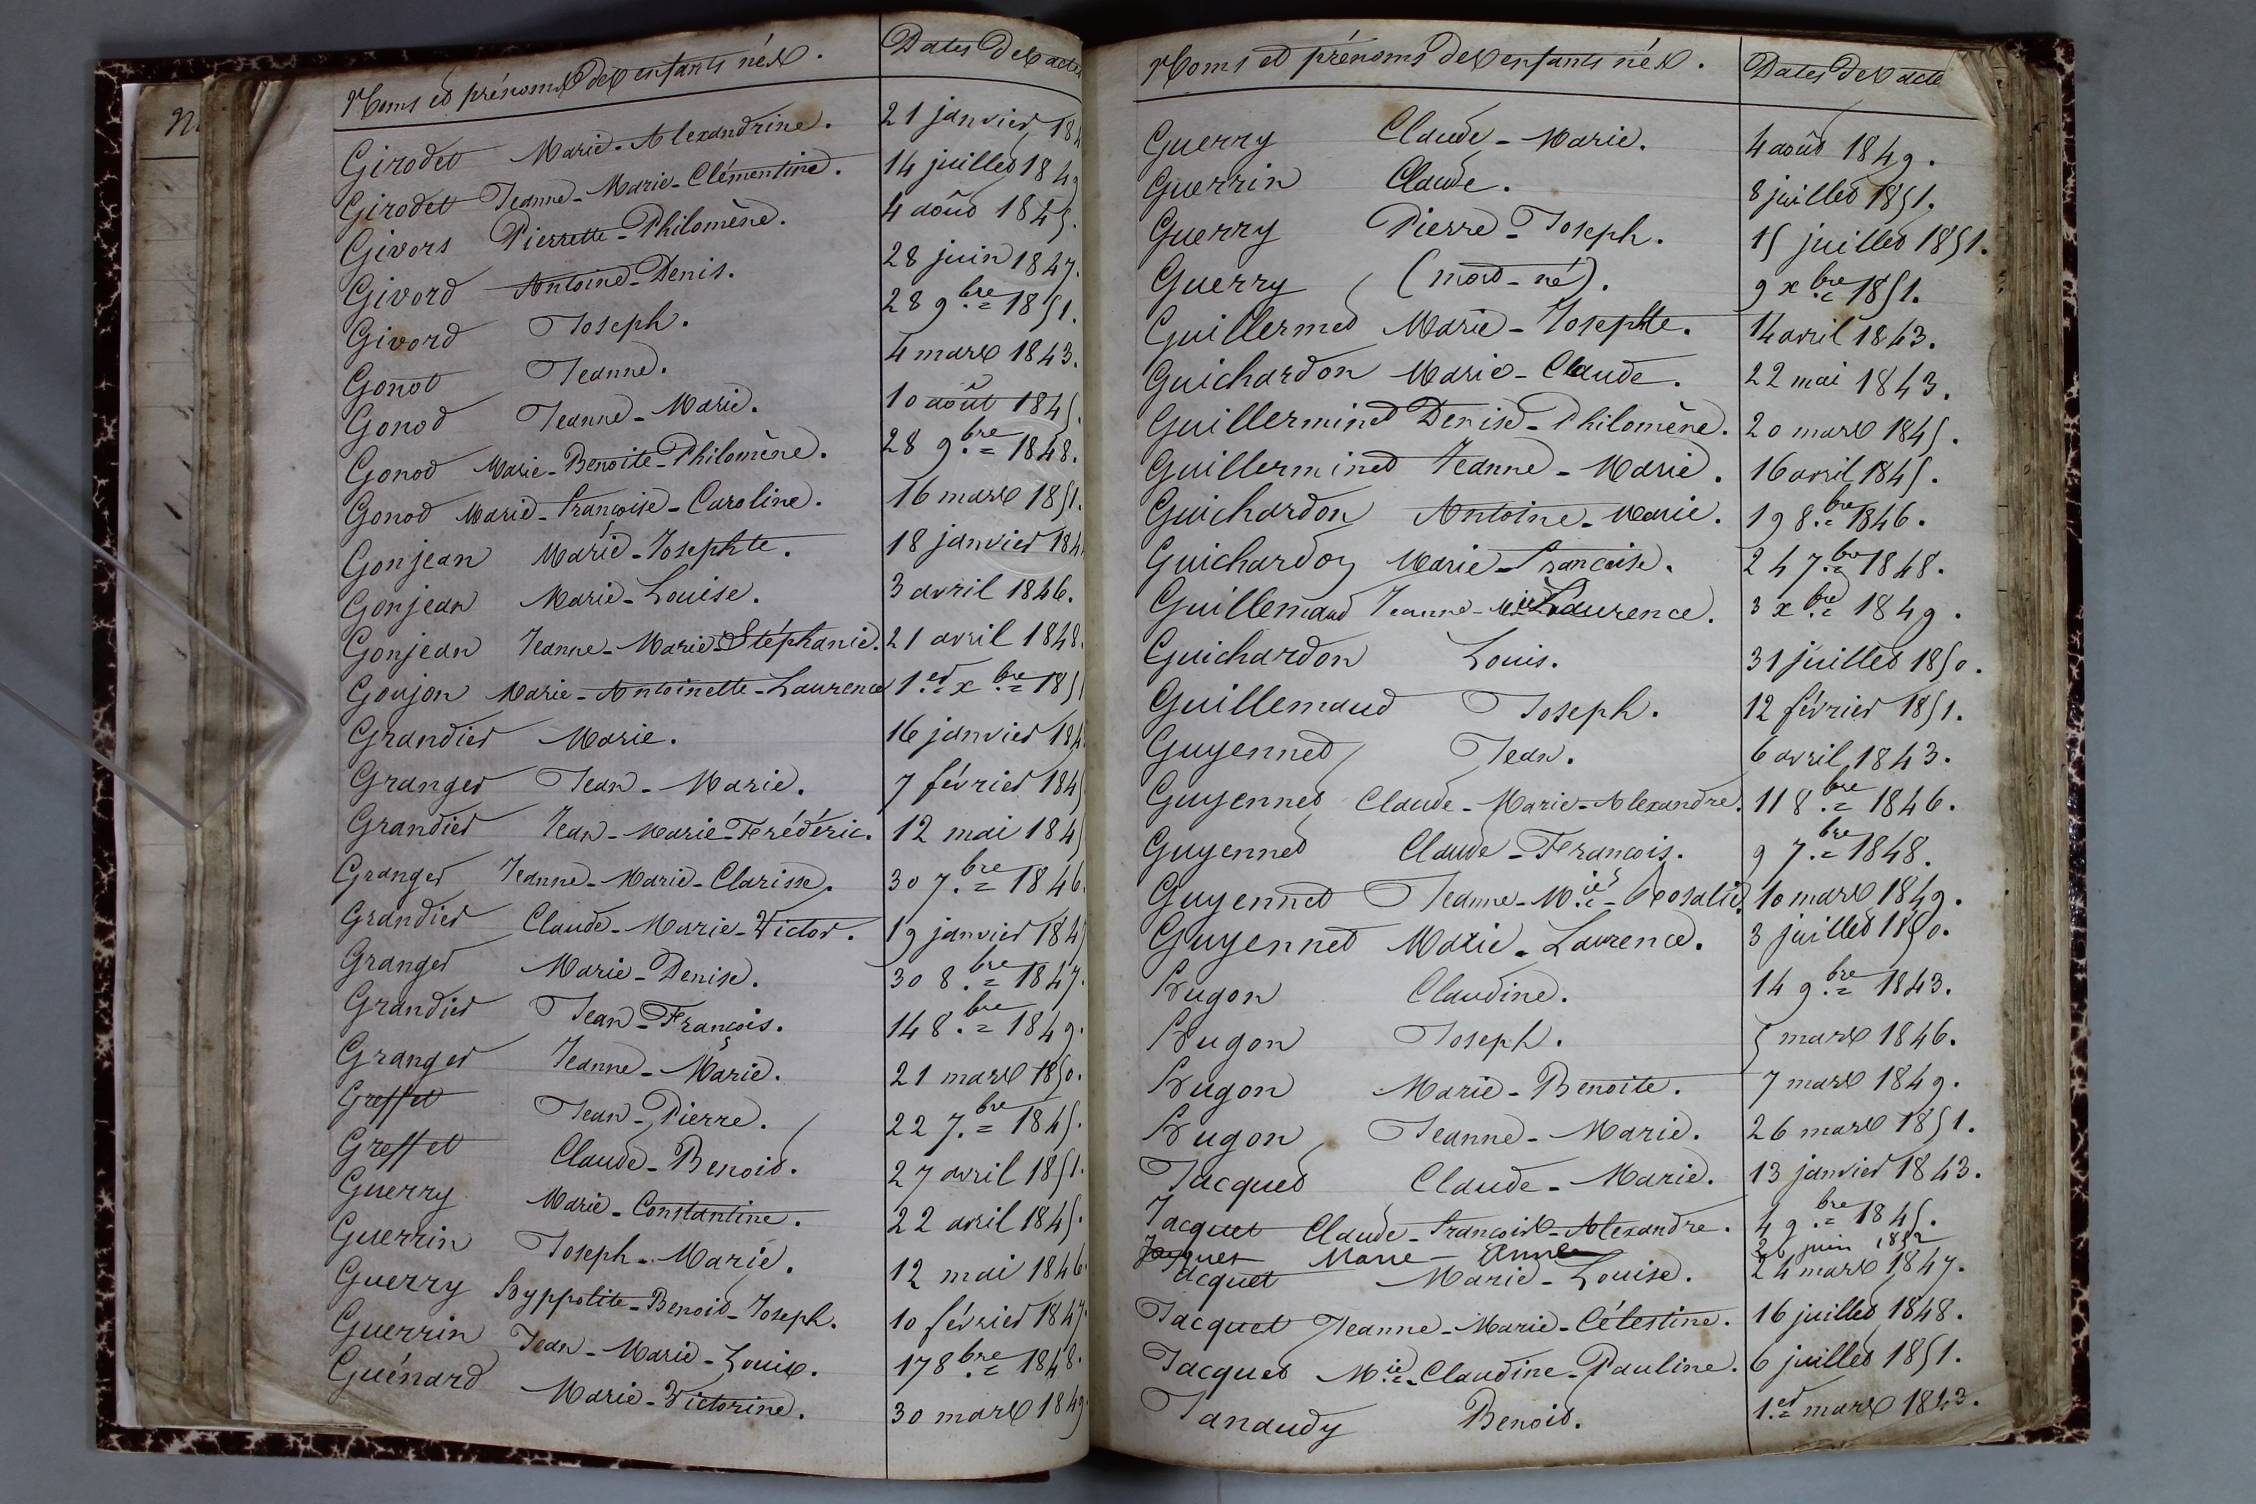 Noms et prénoms des enfants nés.
Dates des actes
Girodet Marie-Alexandrine. 21 janvier 184
Girodet Jeanne-Marie-Clémentine. 14 juillet 1849
Givors Pierrette-Philomène. 4 août 1845.
Givord Antoine-Denis. 28 juin 1847.
Givord Joseph. 28 9.bre 1851.
Gonot Jeanne. 4 mars 1843.
Gonod Jeanne-Marie. 10 août 1845.
Gonod Marie-Benoite-Philomène. 28 9.bre 1848.
Gonod Marie-Françoise-Caroline. 16 mars 1851.
Gonjean Marie-Josephte. 18 janvier 184
Gonjean Marie-Louise. 3 avril 1846.
Gonjean Jeanne-Marie-Stéphanie. 21 avril 1848.
Goujon Marie-Antoinette-Laurence 1.er x.bre 185
Grandier Marie. 16 janvier 184
Granger Jean-Marie. 7 février 1845
Grandier Jean-Marie-Frédéric. 12 mai 1845
Granger Jeanne-Marie-Clarisse. 30 7.bre 1846.
Grandier Claude-Marie-Victor. 19 janvier 184
Granger Marie-Denise. 30 8.bre 1847.
Grandier Jean-François. 14 8.bre 1849.
Granger Jeanne-Marie. 21 mars 1850.
Greffet Jean-Pierre. 22 7.bre 1845.
Greffet Claude-Benoit. 27 avril 1851.
Guerry Marie-Constantine. 22 avril 1845.
Guerrin Joseph-Marie. 12 mai 1846
Guerry Hyppolite-Benoit-Joseph. 10 février 1847.
Guerrin Jean-Marie-Louis. 17 8.bre 1848.
Guénard Marie-Victorine. 30 mars 1849
Noms et prénoms des enfants nés.
Dates des acte
Guerry Claude-Marie. 4 août 1849.
Guerrin Claude. 8 juillet 1851.
Guerry Pierre-Joseph. 15 juillet 1851.
Guerry (mort-né). 9 x.bre 1851.
Guillermet Marie-Josephte. 14 avril 1843.
Guichardon Marie-Claude. 22 mai 1843.
Guillerminet Denise-Philomène. 20 mars 1845.
Guillerminet Jeanne-Marie. 16 avril 1845.
Guichardon Antoine-Marie. 19 8.bre 1846.
Guichardon Marie-Françoise. 24 7.bre 1848.
Guillemaud Jeanne-Mie Laurence. 3 x.bre 1849.
Guichardon Louis. 31 juillet 1850.
Guillemaud Joseph. 12 février 1851.
Guyennet Jean. 6 avril 1843.
Guyennet Claude-Marie-Alexandre. 11 8.bre 1846.
Guyennet Claude-François. 9 7.bre 1848.
Guyennet Jeanne-M.ie-Rosalie. 10 mars 1849.
Guyennet Marie-Laurence. 3 juillet 1850.
Hugon Claudine. 14 9.bre 1843.
Hugon Joseph. 5 mars 1846.
Hugon Marie-Benoite. 7 mars 1849.
Hugon Jeanne-Marie. 26 mars 1851.
Jacquet Claude-Marie. 13 janvier 1843.
Jacquet Claude-François-Alexandre. 4 9.bre 1845.
Jacquet Marie-Anne 26 juin 1852
Jacquet Marie-Louise. 24 mars 1847.
Jacquet Jeanne-Marie-Célestine. 16 juillet 1848.
Jacquet M.ie-Claudine-Pauline. 6 juillet 1851.
Janaudy Benoit. 1.er mars 1843.